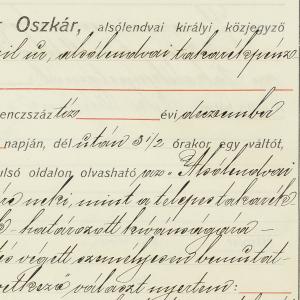 r Oszkár, alsólendvai királyi közjegyző
úr, alsólendvai takarékpénz
enczszáz tíz évi deczember
napján, dél után 3 1/2 órakor egy váltót,
ulső oldalon olvasható " Alsólendvai
neki, mint a telepes takarék
k határozott kivánságára -
végett személyesen bemutat-
vetkező választ nyertem: